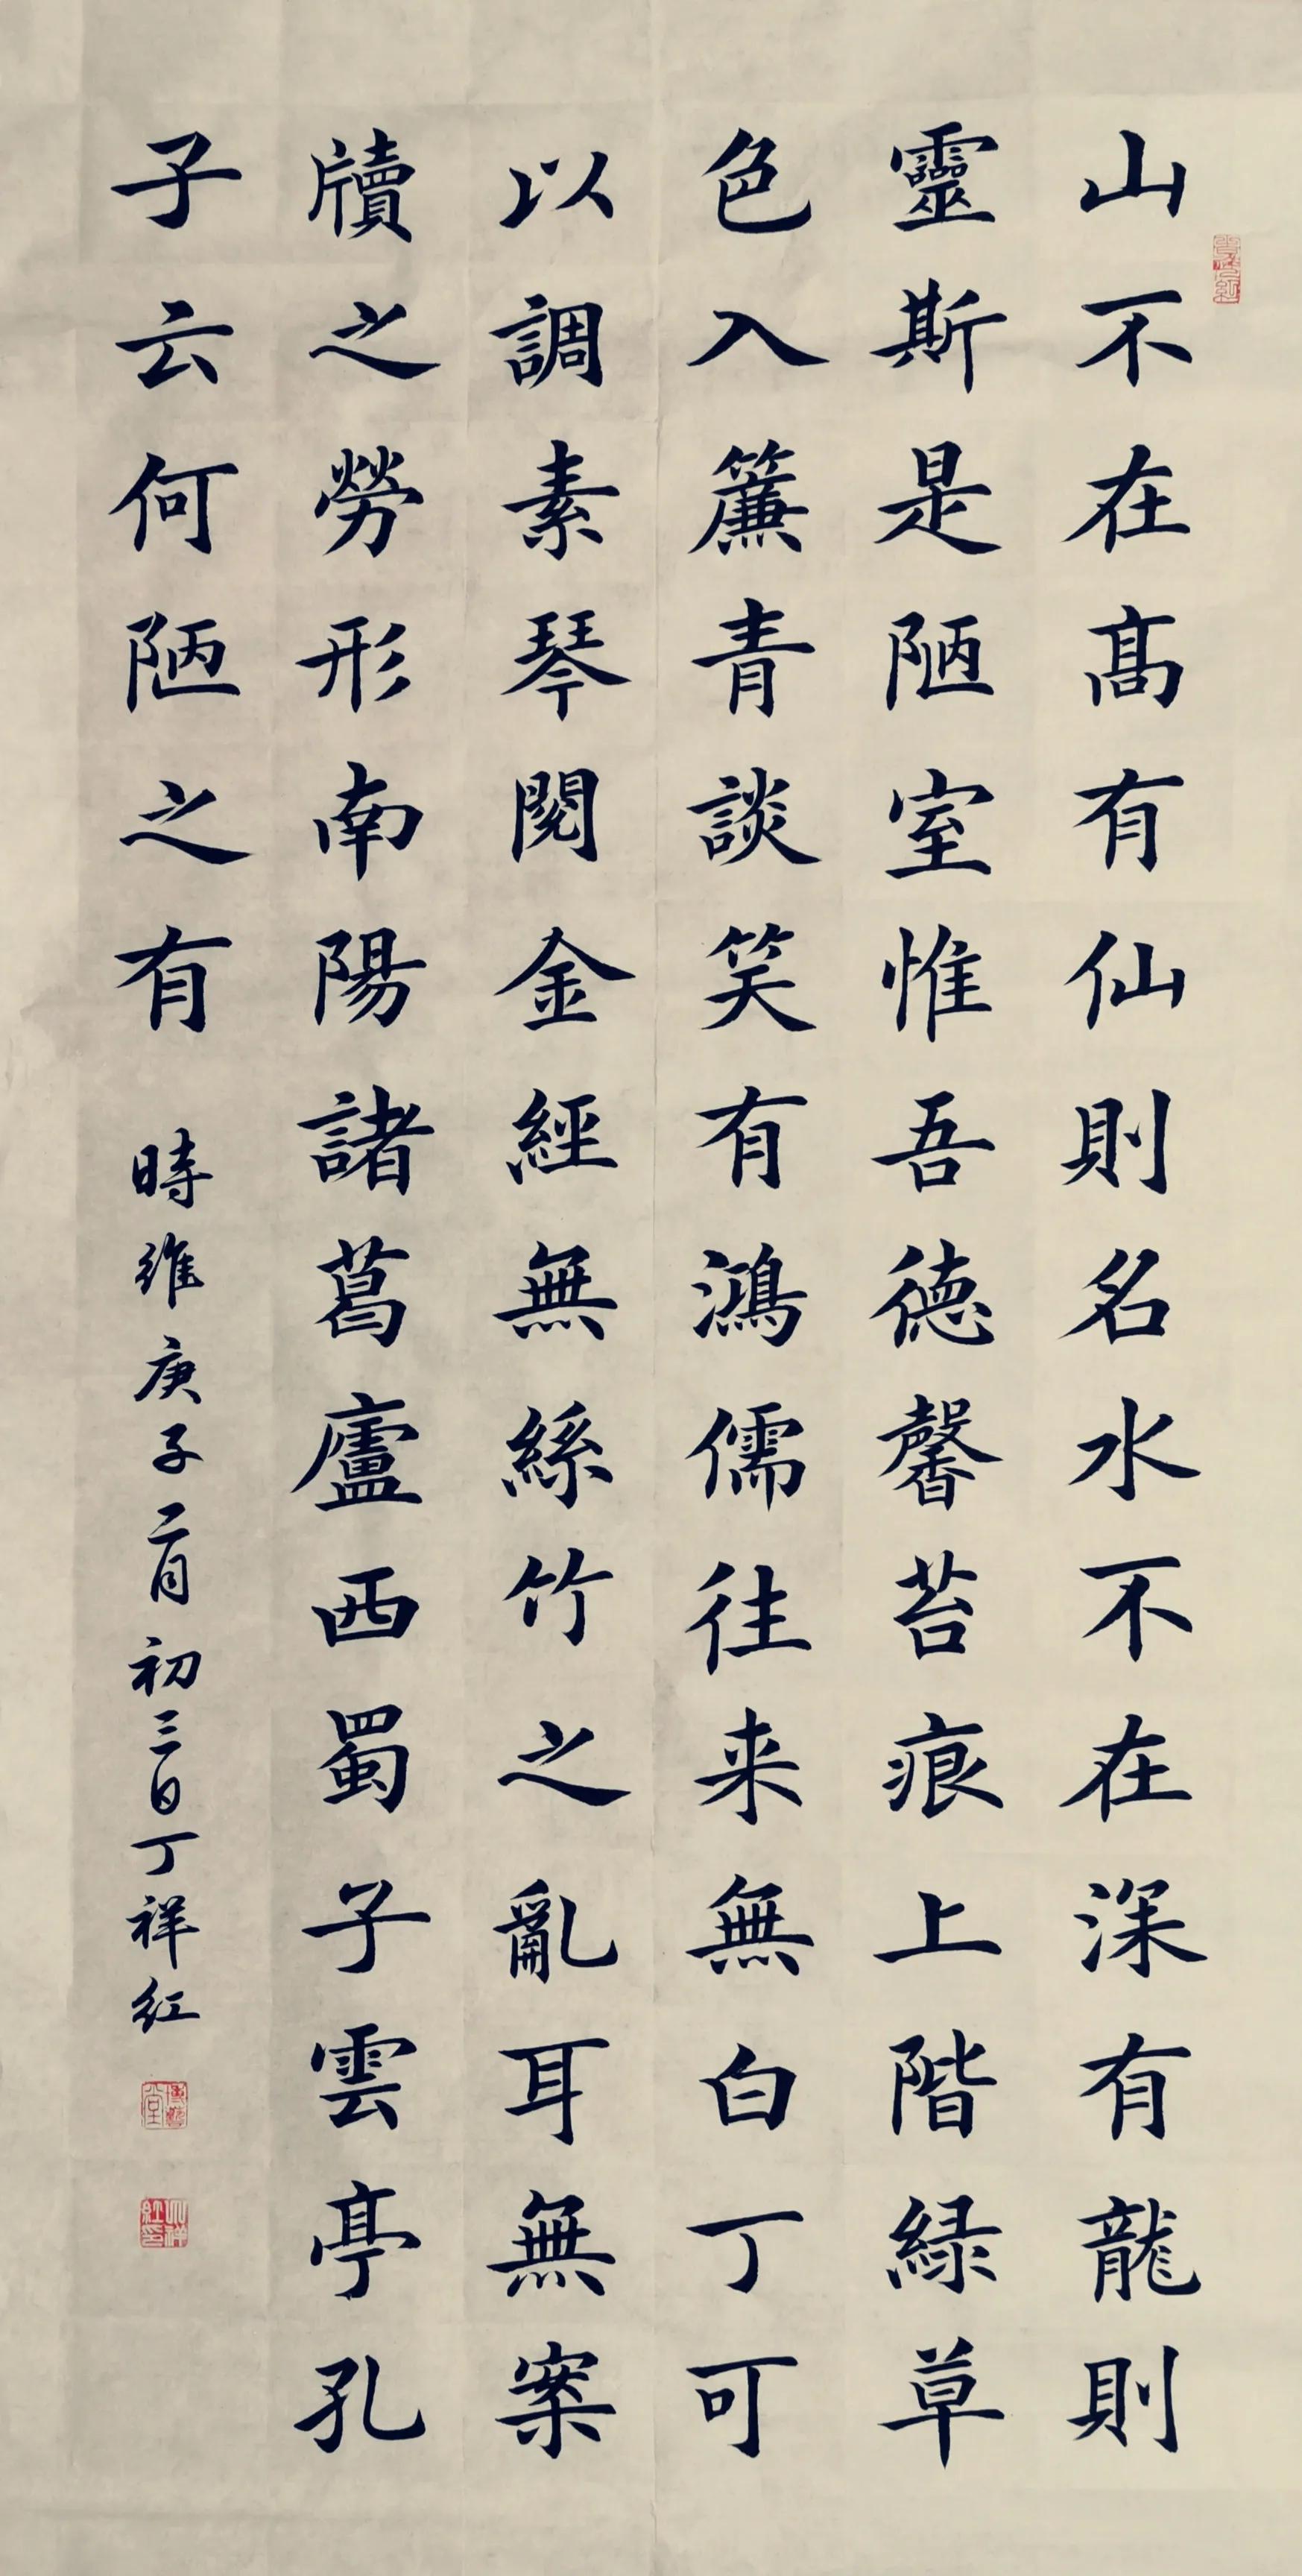 山不在高有仙則名水不在深有龍則
靈斯是陋室惟吾德馨苔痕上階綠草
色入簾青談笑有鴻儒往来無白丁可
以調素琴閱金經無絲竹之亂耳無案
牘之勞形南陽諸葛廬西蜀子雲亭孔
子云何陋之有
時維庚子二月初三日丁祥红